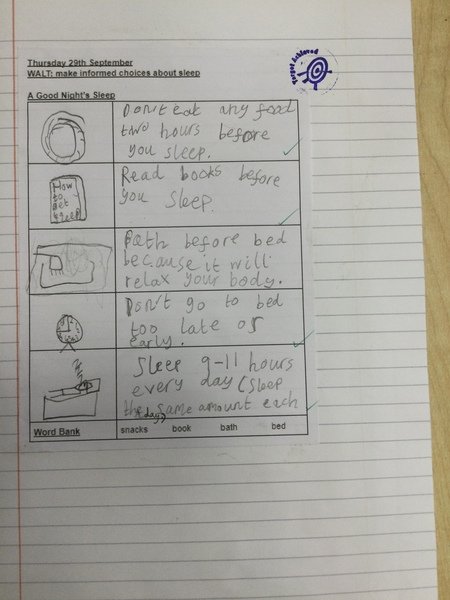 Thursday 29th September
WALT: make informed choices about sleep
Target Achieved
A Good Night's Sleep
Don't eat any food
two hours before
you sleep.
How
to
get
sleep
Read books before
you sleep.
Bath before bed
because it will
relax your body.
Don't go to bed
too late or
early.
Sleep 9-11 hours
every day (sleep
the same amount each
day)
Word Bank snacks book bath bed